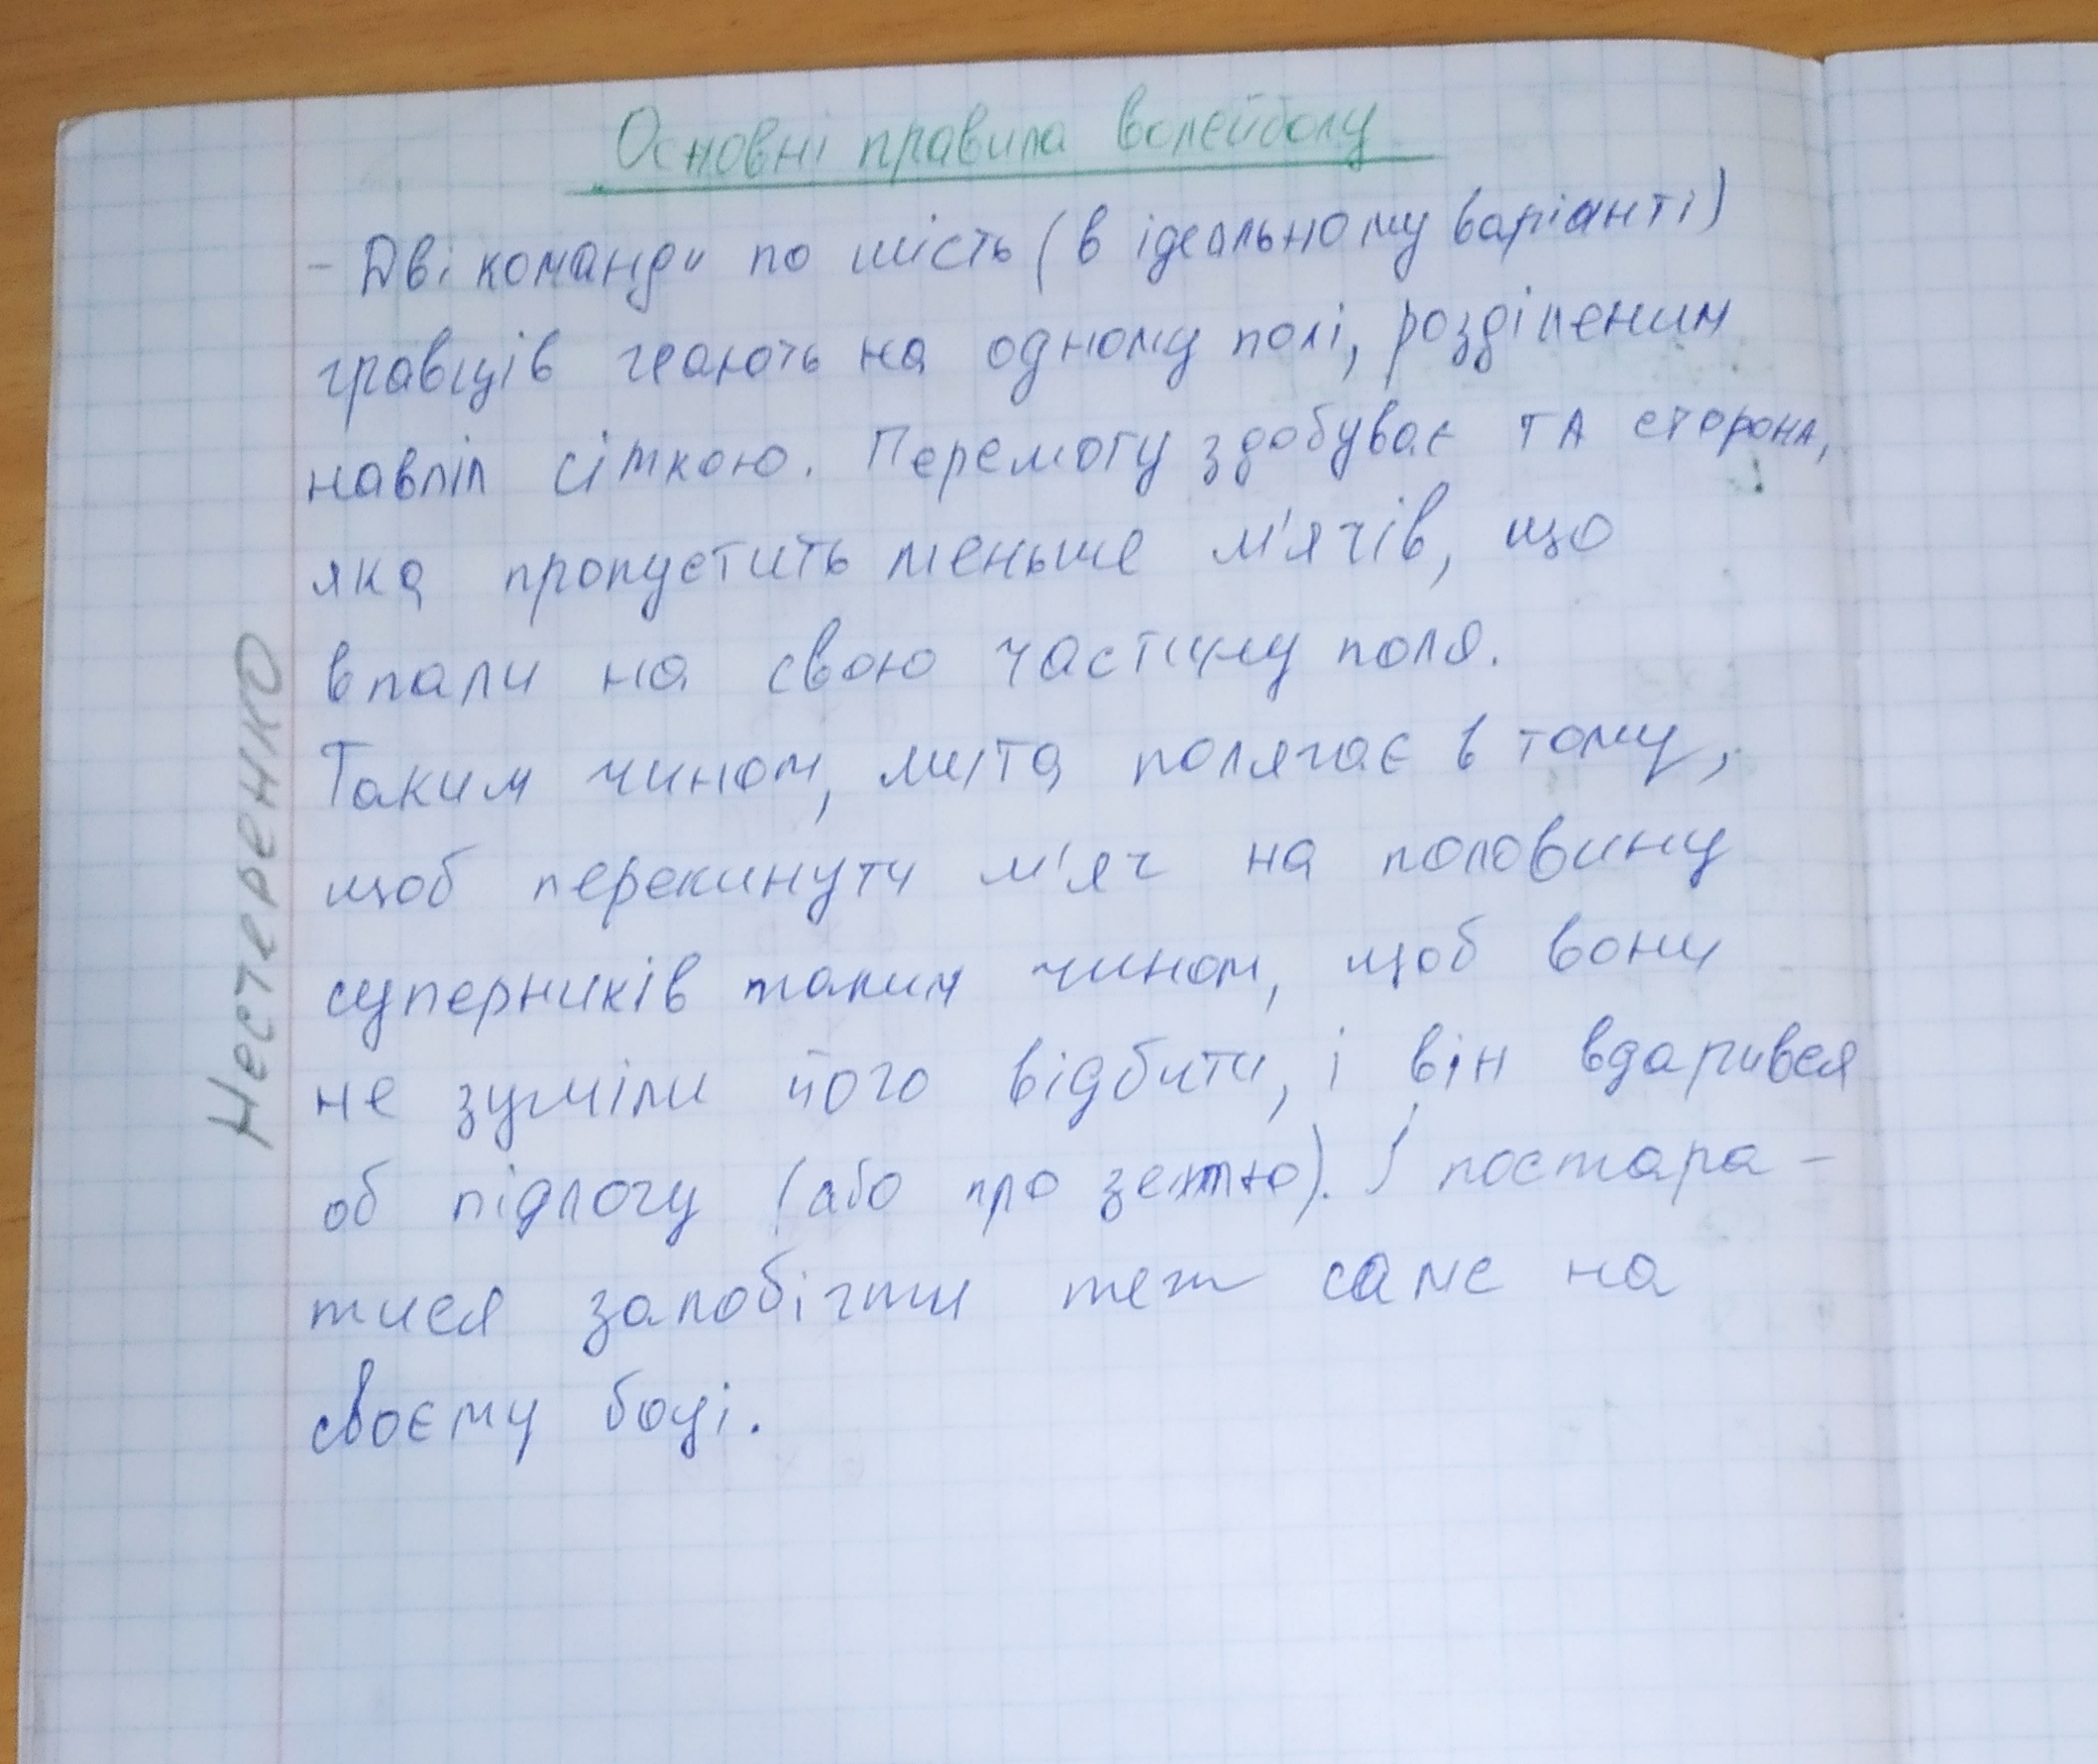 Основні правила волейболу
- Дві команди по шість (в ідеальному варіанті)
гравців грають на одному полі, розділеним
навпіл сіткою. Перемогу здобуває та сторона,
яка пропустить меньше м'ячів, що
впали на свою частину поля.
Таким чином, мета полягає в тому,
щоб перекинути м'яч на половину
суперників таким чином, щоб вони
не зуміли його відбити, і він вдарився
об підлогу (або про землю). І постара-
тися запобігти теж саме на
своєму боці.
Нестеренко